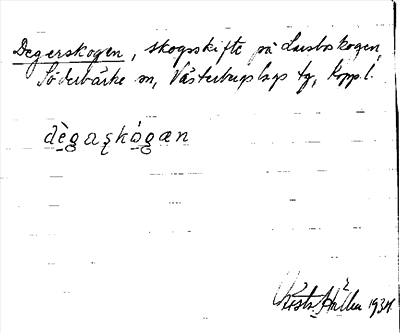 Degerskogen, skogsskifte på Lusboskogen,
Söderbärke sn, Västerbergslags tg, Kopp.l.
dègaʂkògæn
1934.